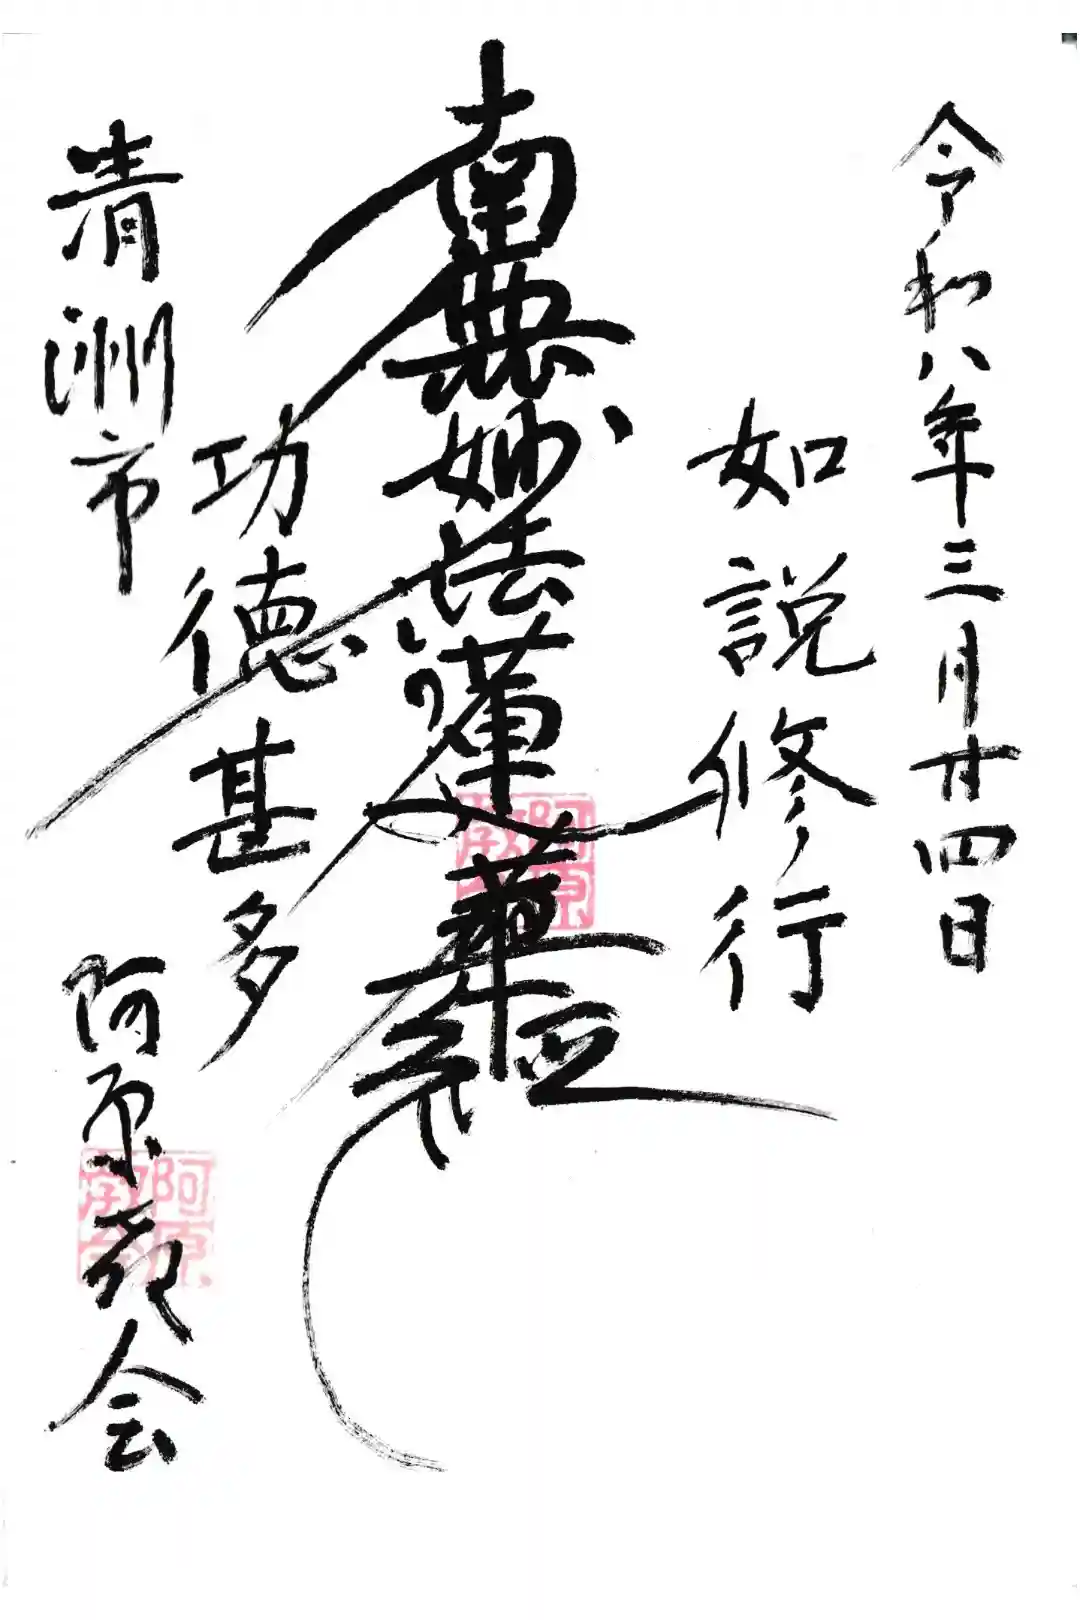 令和八年三月廿四日
如説修行
南無妙法蓮華経
功徳甚多
青洲市
阿原教会
阿原
教会